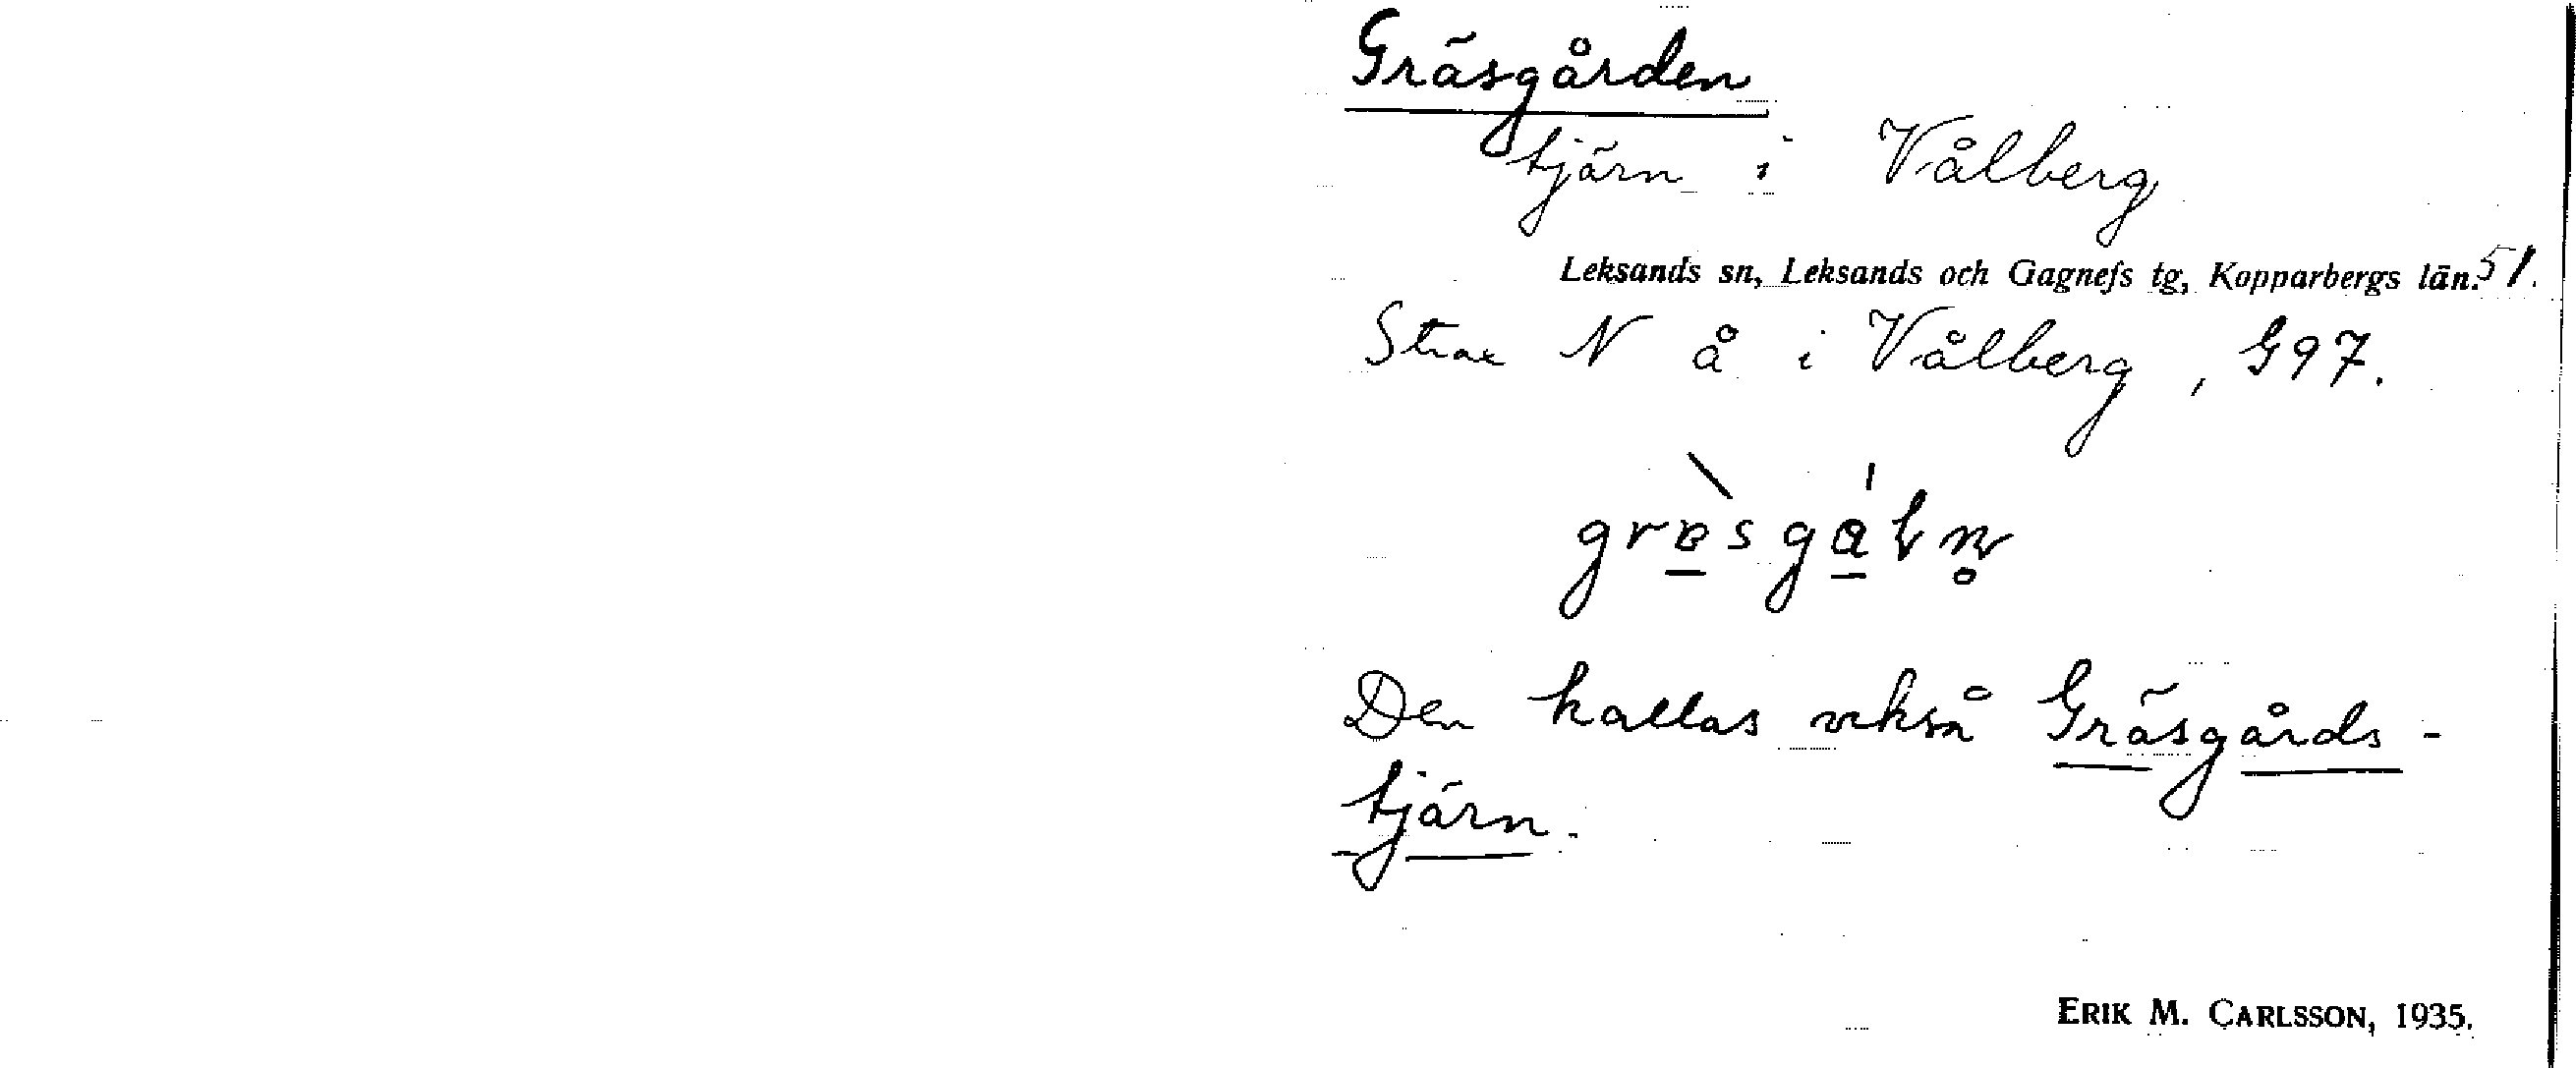 Gräsgården
tjärn i Vålberg
Leksands sn, Leksands och Gagnefs tg, Kopparbergs län. 51.
Strax N å i Vålberg, G97.
Den kallas också Gräsgårds-
tjärn.
ERIK M. CARLSSON, 1935.